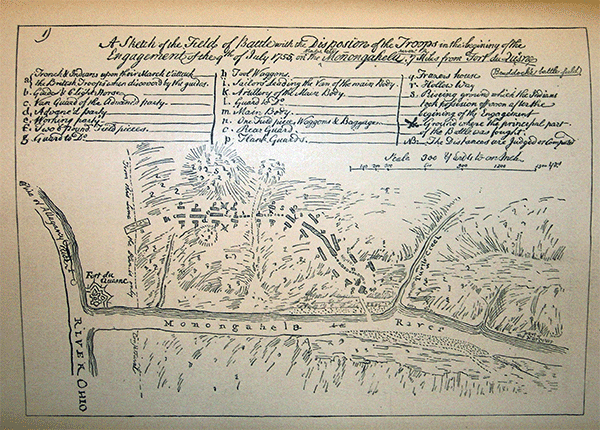 A Sketch of the Field of Battle with the Disposion of the Troops in the begining of the
Engagement of the 9th of July 1755 on the Monongahela 7 Miles from Fort du Quisne
(Braddock's battle-field)
a. French & Indians upon their March t'attack
the British Troops when discover'd by the guides.
b. Guides & 6 Light Horse
c. Van Guard of the Advanced party
d. Advanced party
e. Working party
f. Two 6 Pound Field pieces.
g. Guard to Do.
h. Tool Waggons.
i. the Van of the main body.
k. Artillery of the Main Body.
l. Guard to Do
m. Main Body.
n. One Field piece, Waggons & Baggage.
o. Rear Guard
p. Flank Guards.
q. Frasers house
r. Hollow Way
s. Rising ground which the Indians
took possession of soon after the
begining of the Engagement
Ground where the principal part
of the Battle was fought.
NB. The Distances are Judged or Computed
Scale 300 Yards to an Inch
Fort du
Quesne
Monongahela River
RIVER OHIO